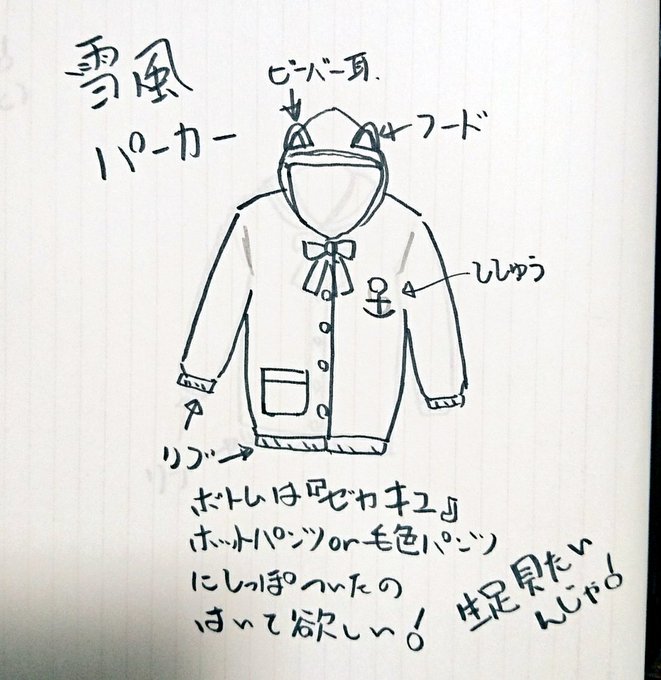 雪風
パーカー
ビーバー耳
フード
ししゅう
リブ
ボトムは『ゼカキユ』
ホットパンツor毛色パンツ
にしっぽついたの
はいて欲しい!
生足見たい
んじゃ!